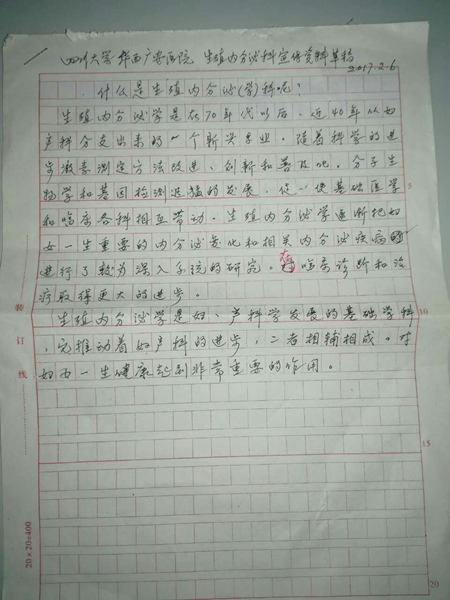 四川大学华西广安医院 生殖内分泌科宣传资料草稿
2017.2.6
什么是生殖内分泌(学)科呢?
生殖内分泌学是在70年代以后,近40年从妇
产科分支出来的一个新兴专业。随着科学的进
步激素测定方法改进、创新和普及化。分子生
物学和基因检测迅猛的发展,促使基础医学
和临床各科相互带动。生殖内分泌学逐渐把妇
女一生重要的内分泌变化和相关内分泌疾病
进行了较为深入系统的研究。在临床诊断和治
疗取得更大的进步。
生殖内分泌学是妇、产科学发展的基础学科
,它推动着妇产科的进步,二者相辅相成。对
妇女一生健康起到非常重要的作用。
装
订
线
5
10
15
20
20×20=400